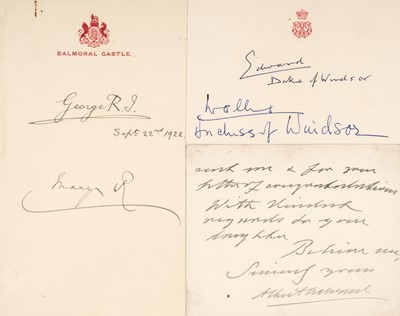 BALMORAL CASTLE.
George R.I.
Sept. 22nd 1922
Mary R
Edward
Duke of Windsor
Wallis
Duchess of Windsor
sent me & for your
letter of congratulations
With kindest
regards to your
daughter
Believe me
Sincerely yours